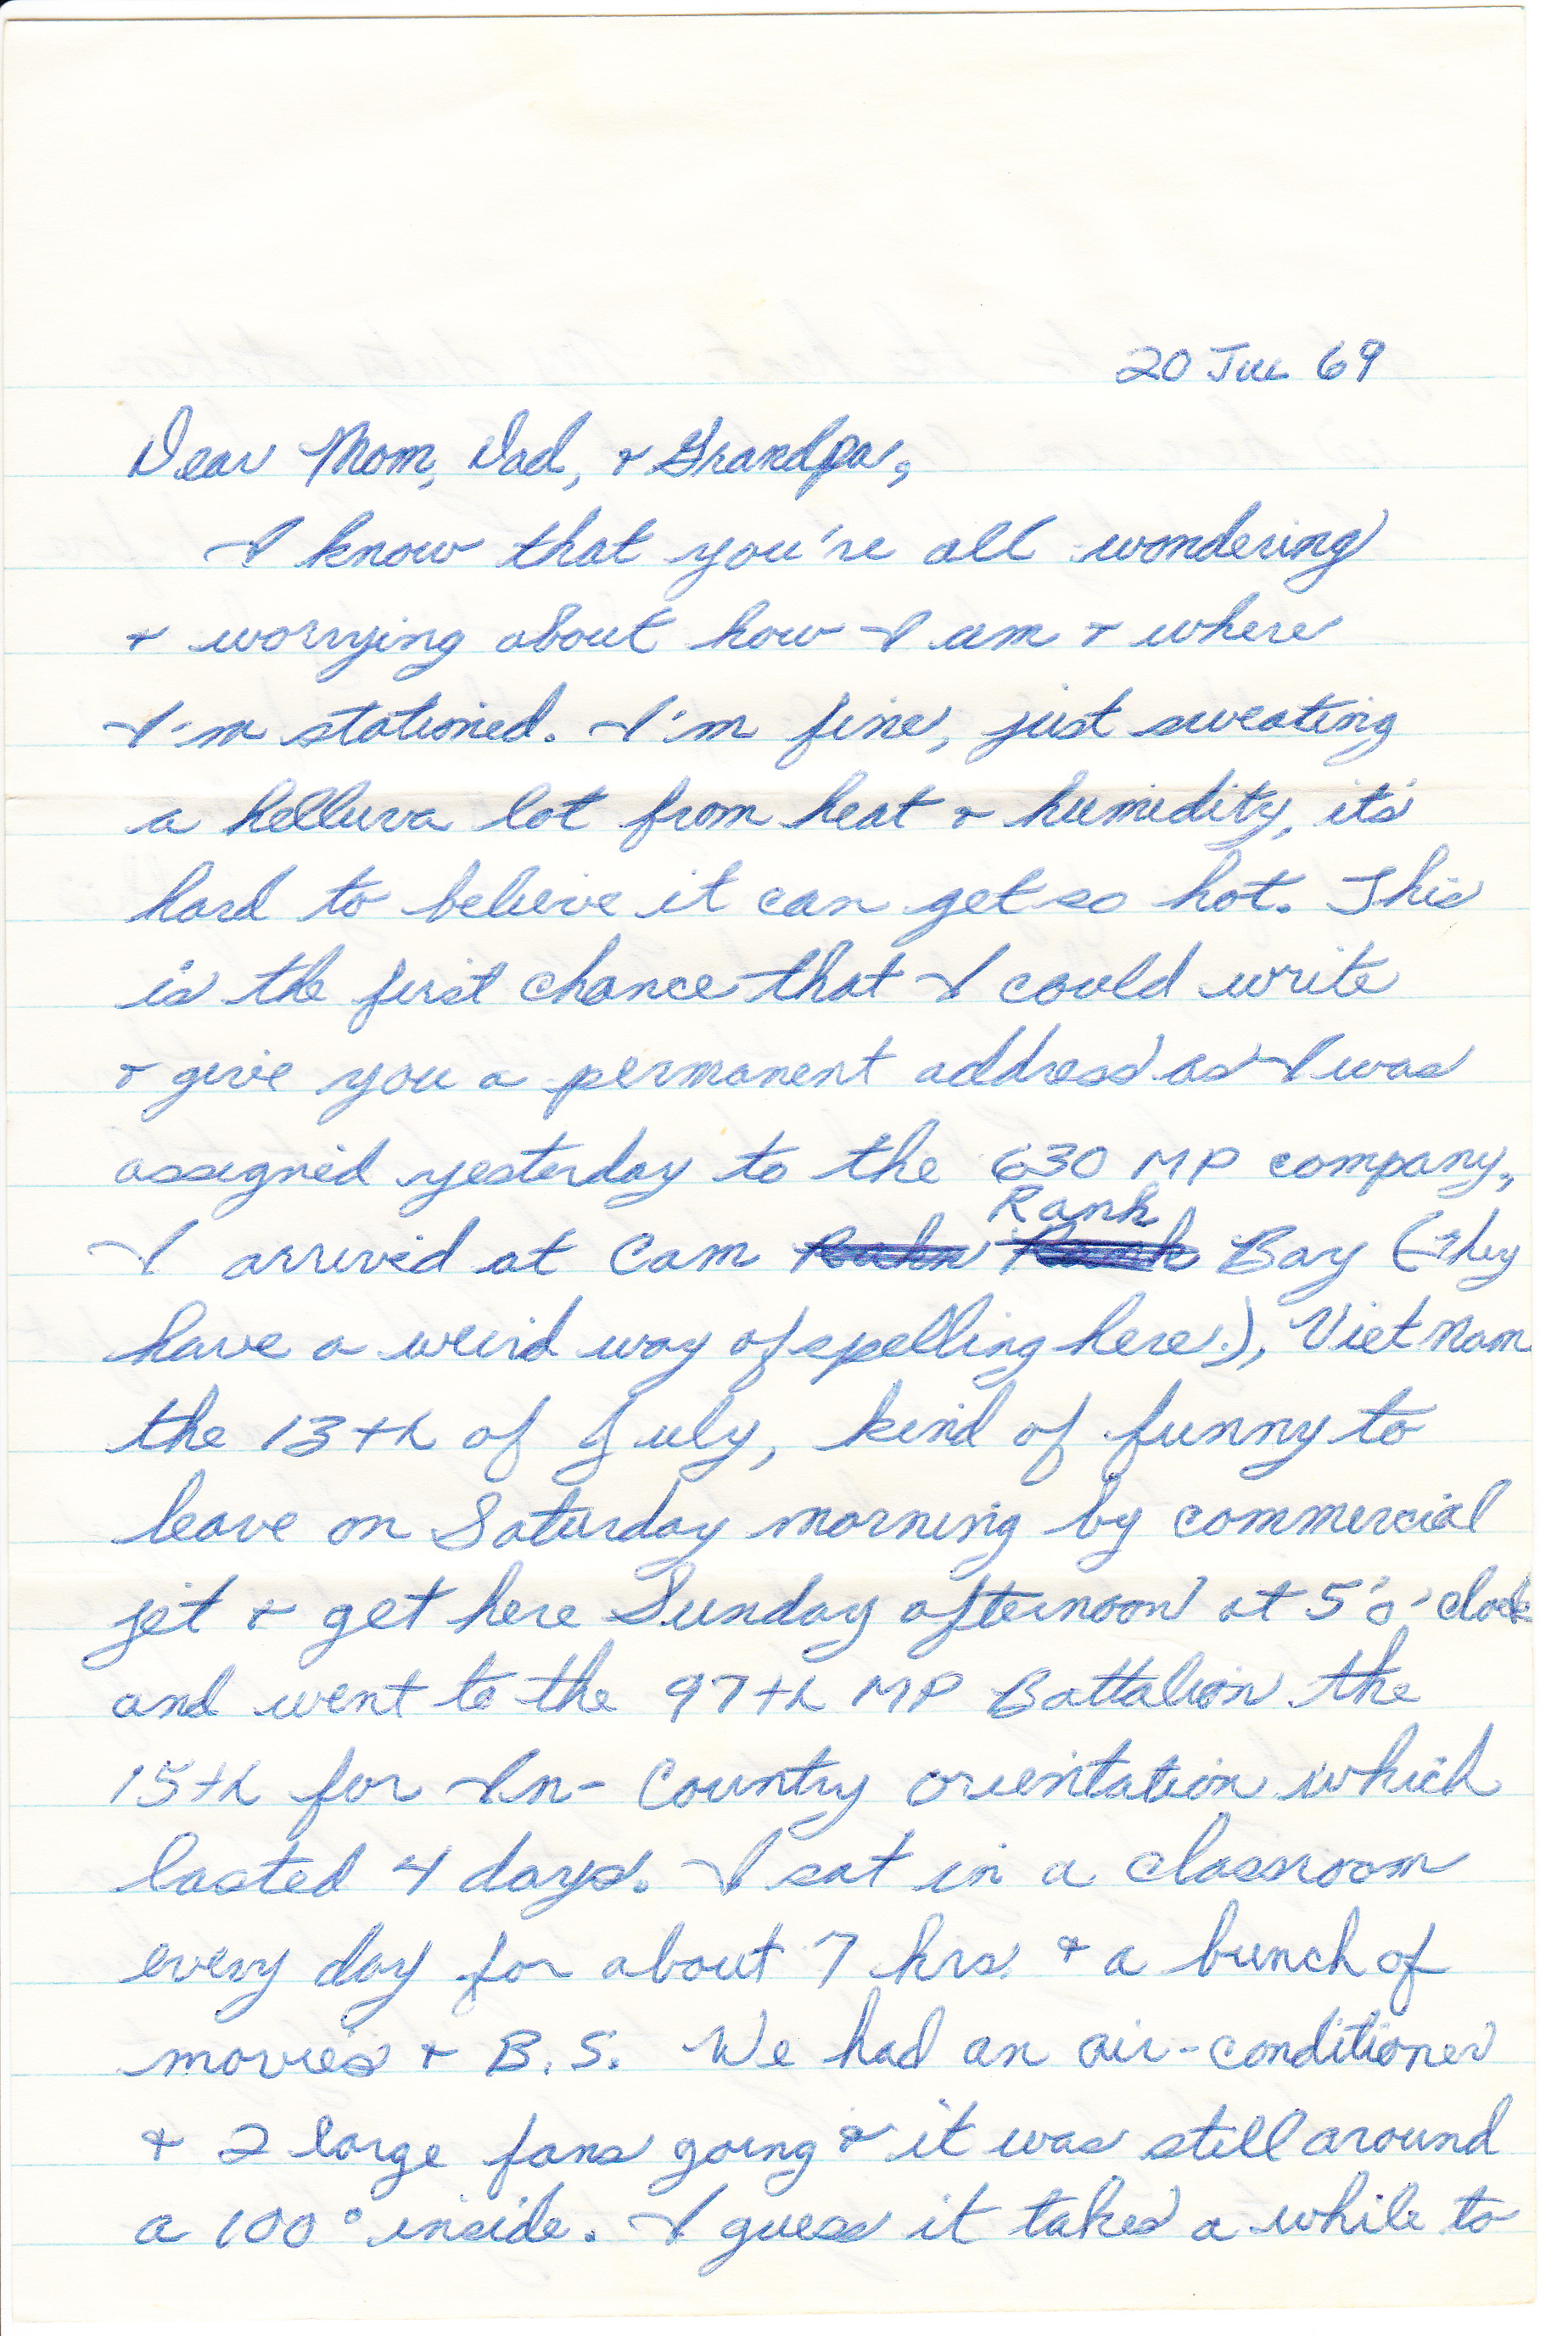 20 JUL 69
Dear Mom, Dad, & Grandpa,
I know that you're all wondering
& worrying about how I am & where
I'm stationed. I'm fine, just sweating
a helluva lot from heat & humidity, it's
hard to believe it can get so hot. This
is the first chance that I could write
& give you a permanent address as I was
assigned yesterday to the 630 MP company,
Ranh
I arrived at Cam Rahn Bay (They
have a weird way of spelling here.), Viet Nam
the 13th of July, kind of funny to
leave on Saturday morning by commercial
jet & get here Sunday afternoon at 5'o'clock
and went to the 97th MP Battalion the
15th for In-Country orientation which
lasted 4 days. I sat in a classroom
every day for about 7 hrs. & a bunch of
movies & B.S. We had an air-conditioner
& 2 large fans going & it was still around
a 100° inside. I guess it takes a while to